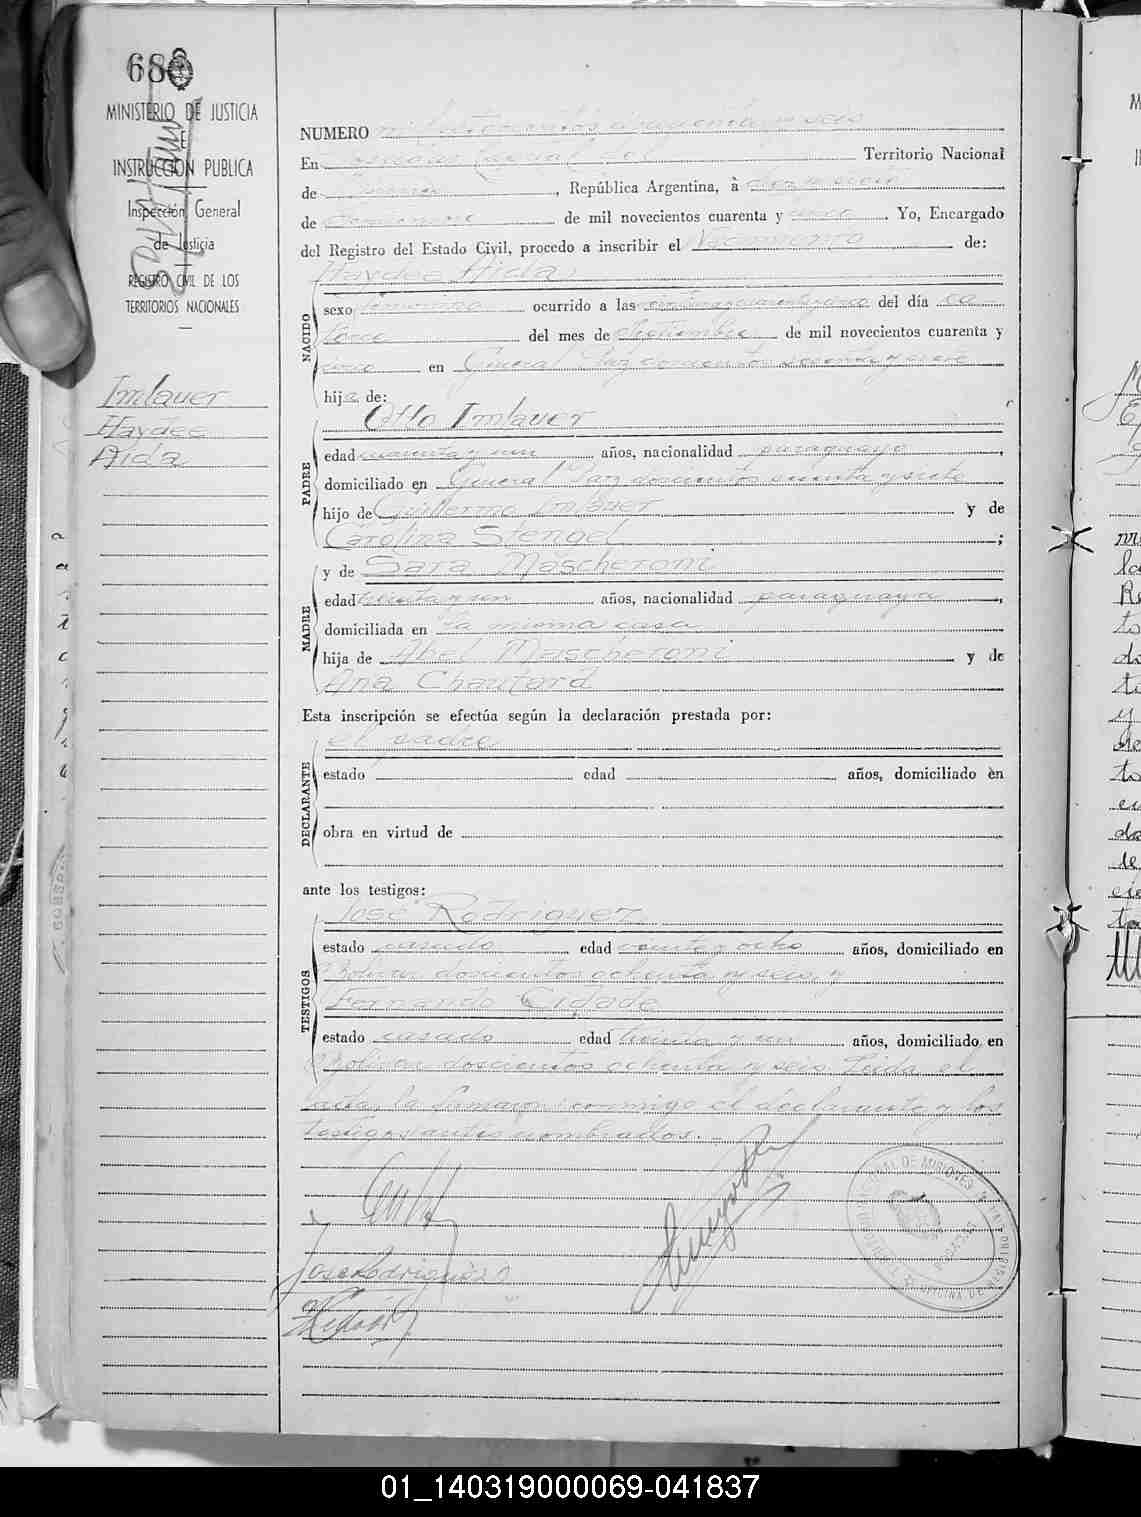 688
MINISTERIO DE JUSTICIA
E
INSTRUCCION PUBLICA
Inspección General
de Justicia
REGISTRO CIVIL DE LOS
TERRITORIOS NACIONALES
Imlauer
Haydee
Aida
NUMERO mil y seis
En Posadas Capital del Territorio Nacional
de Misiones, República Argentina, à diez y siete
de de mil novecientos cuarenta y cinco. Yo, Encargado
del Registro del Estado Civil, procedo a inscribir el Nacimiento de:
Haydee Aida
NACIDO
sexo femenino ocurrido a las del día ca
torce del mes de Septiembre de mil novecientos cuarenta y
cinco en General Paz doscientos sesenta y siete
hija de:
Otto Imlauer
PADRE
edad cuarenta y un años, nacionalidad paraguayo,
domiciliado en General Paz doscientos sesenta y siete
hijo de Guillermo Imlauer y de
Carolina Stengel;
y de Sara Mascheroni
MADRE
edad treinta y un años, nacionalidad paraguaya,
domiciliada en la misma casa
hija de Abel Mascheroni y de
Ana Chautard
Esta inscripción se efectúa según la declaración prestada por:
el padre
DECLARANTE
estado edad años, domiciliado en
obra en virtud de
ante los testigos:
José Rodriguez
TESTIGOS
estado casado edad veinte y ocho años, domiciliado en
Bolivar doscientos ochenta y seis, y
Fernando Cidade
estado casado edad treinta y un años, domiciliado en
Bolivar doscientos ochenta y seis. Leida el
acta, la firmaron conmigo el declarante y los
testigos antes nombrados.-
Jose Rodriguez
01_140319000069-041837